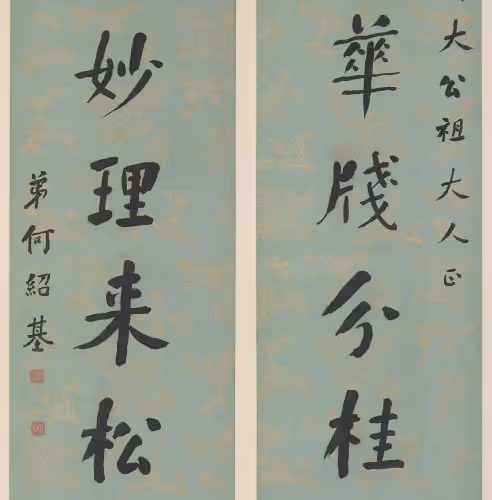 大公祖大人正
華牋分桂
妙理来松
弟何紹基